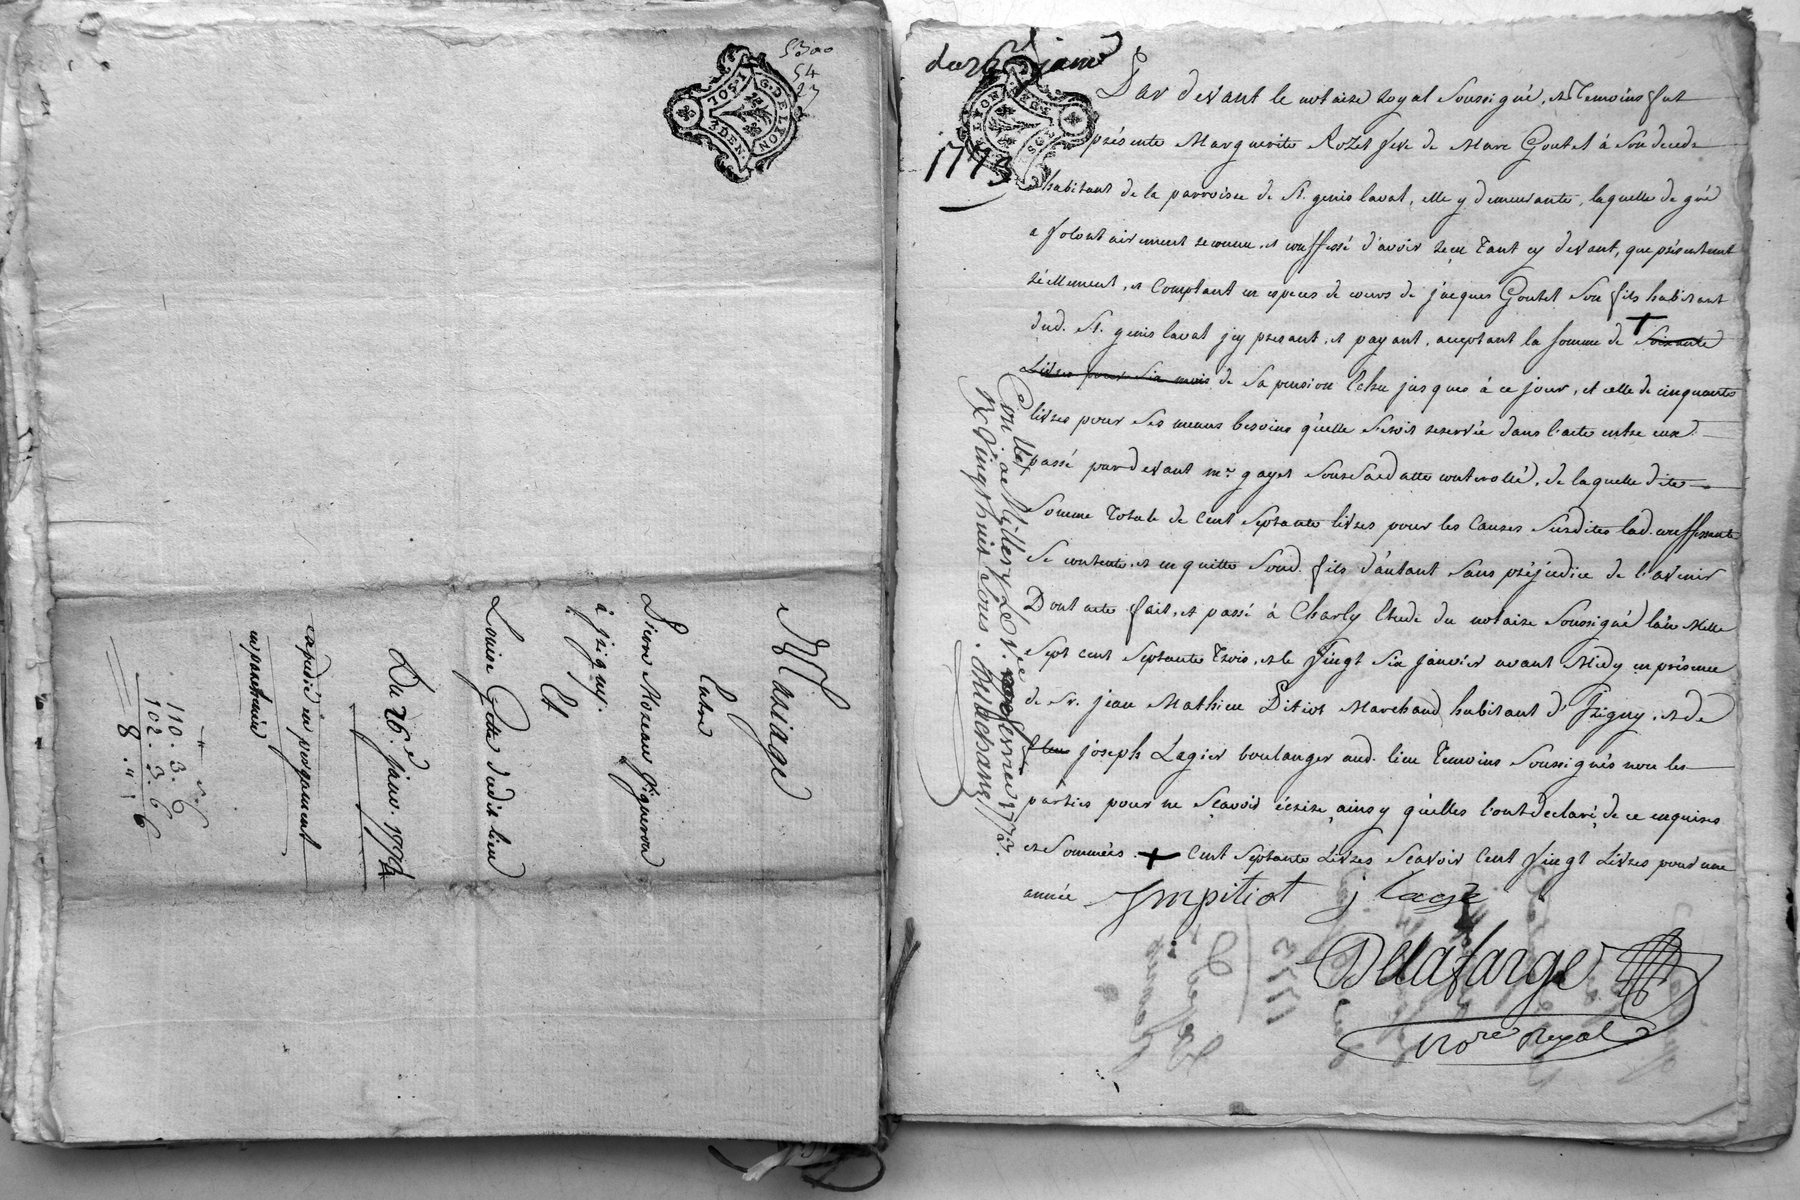 5300
54
27
G. DE LYON
3 DEN
Mariage
Entre
Pierre Mozeau Vigneron
à jrigny.
Et
Louise Gotte dudit lieu
Du 26.e janv. 1774
expedié en pargament
en parchemin
110. 3. 6
102. 3. 6
8. " . 6
du 26 janv
1773
LYON
Par devant le notaire royal soussigné, et temoins fut
présente Marguerite Rozet veve de Marc Goutet à son deceds
habitant de la parroisse de St. genis laval, elle y demeurante, laquelle de gré
a volontairement reconnu, et conffessé d'avoir reçu tant cy devant, que présentement
réellement, et comptant en especes de cours de jacques Goutet son fils habitant
dud. St. genis laval jcy present, et payant, acceptant la somme de + soixante
Livres pour six mois de sa pension Echu jusques à ce jour, et celle de cinquante
livres pour ses menus besoins qu'elle s'etoit reservée dans l'acte entre eux
passé pardevant mr. gayet sous sa datte controllé, de laquelle dite
somme totale de cent septante livres pour les causes susdites lad. conffessante
se contente, et en quitte sond. fils d'autant sans préjudice de l'avenir
Dont acte fait, et passé à Charly Etude du notaire soussigné l'an Mille
sept cent septante trois, et le vingt six janvier avant Midy en présence
de Sr. jean Mathieu Pitiot Marchand habitant d'jrigny, et de
joseph Lagier boulanger aud. lieu temoins soussignés non les
parties pour ne sçavoir écrire, ainsy qu'elles l'ont declaré, de ce enquises
et sommées. + Cent septante Livres scavoir Cent vingt Livres pour une
année
JmPitiot j Lagie
Delafarge
Nore Royal
Con.llé à Millery Le 1.e fevrier 1773.
R. vingt huit sous.